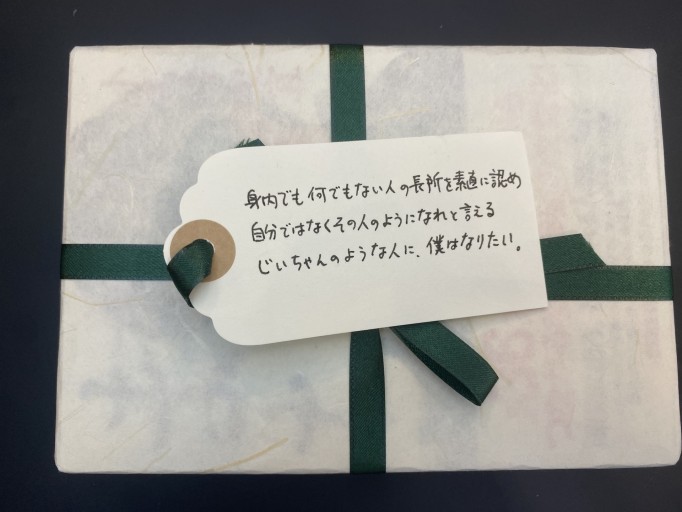 身内でも何でもない人の長所を素直に認め
自分ではなくその人のようになれと言える
じいちゃんのような人に、僕はなりたい。